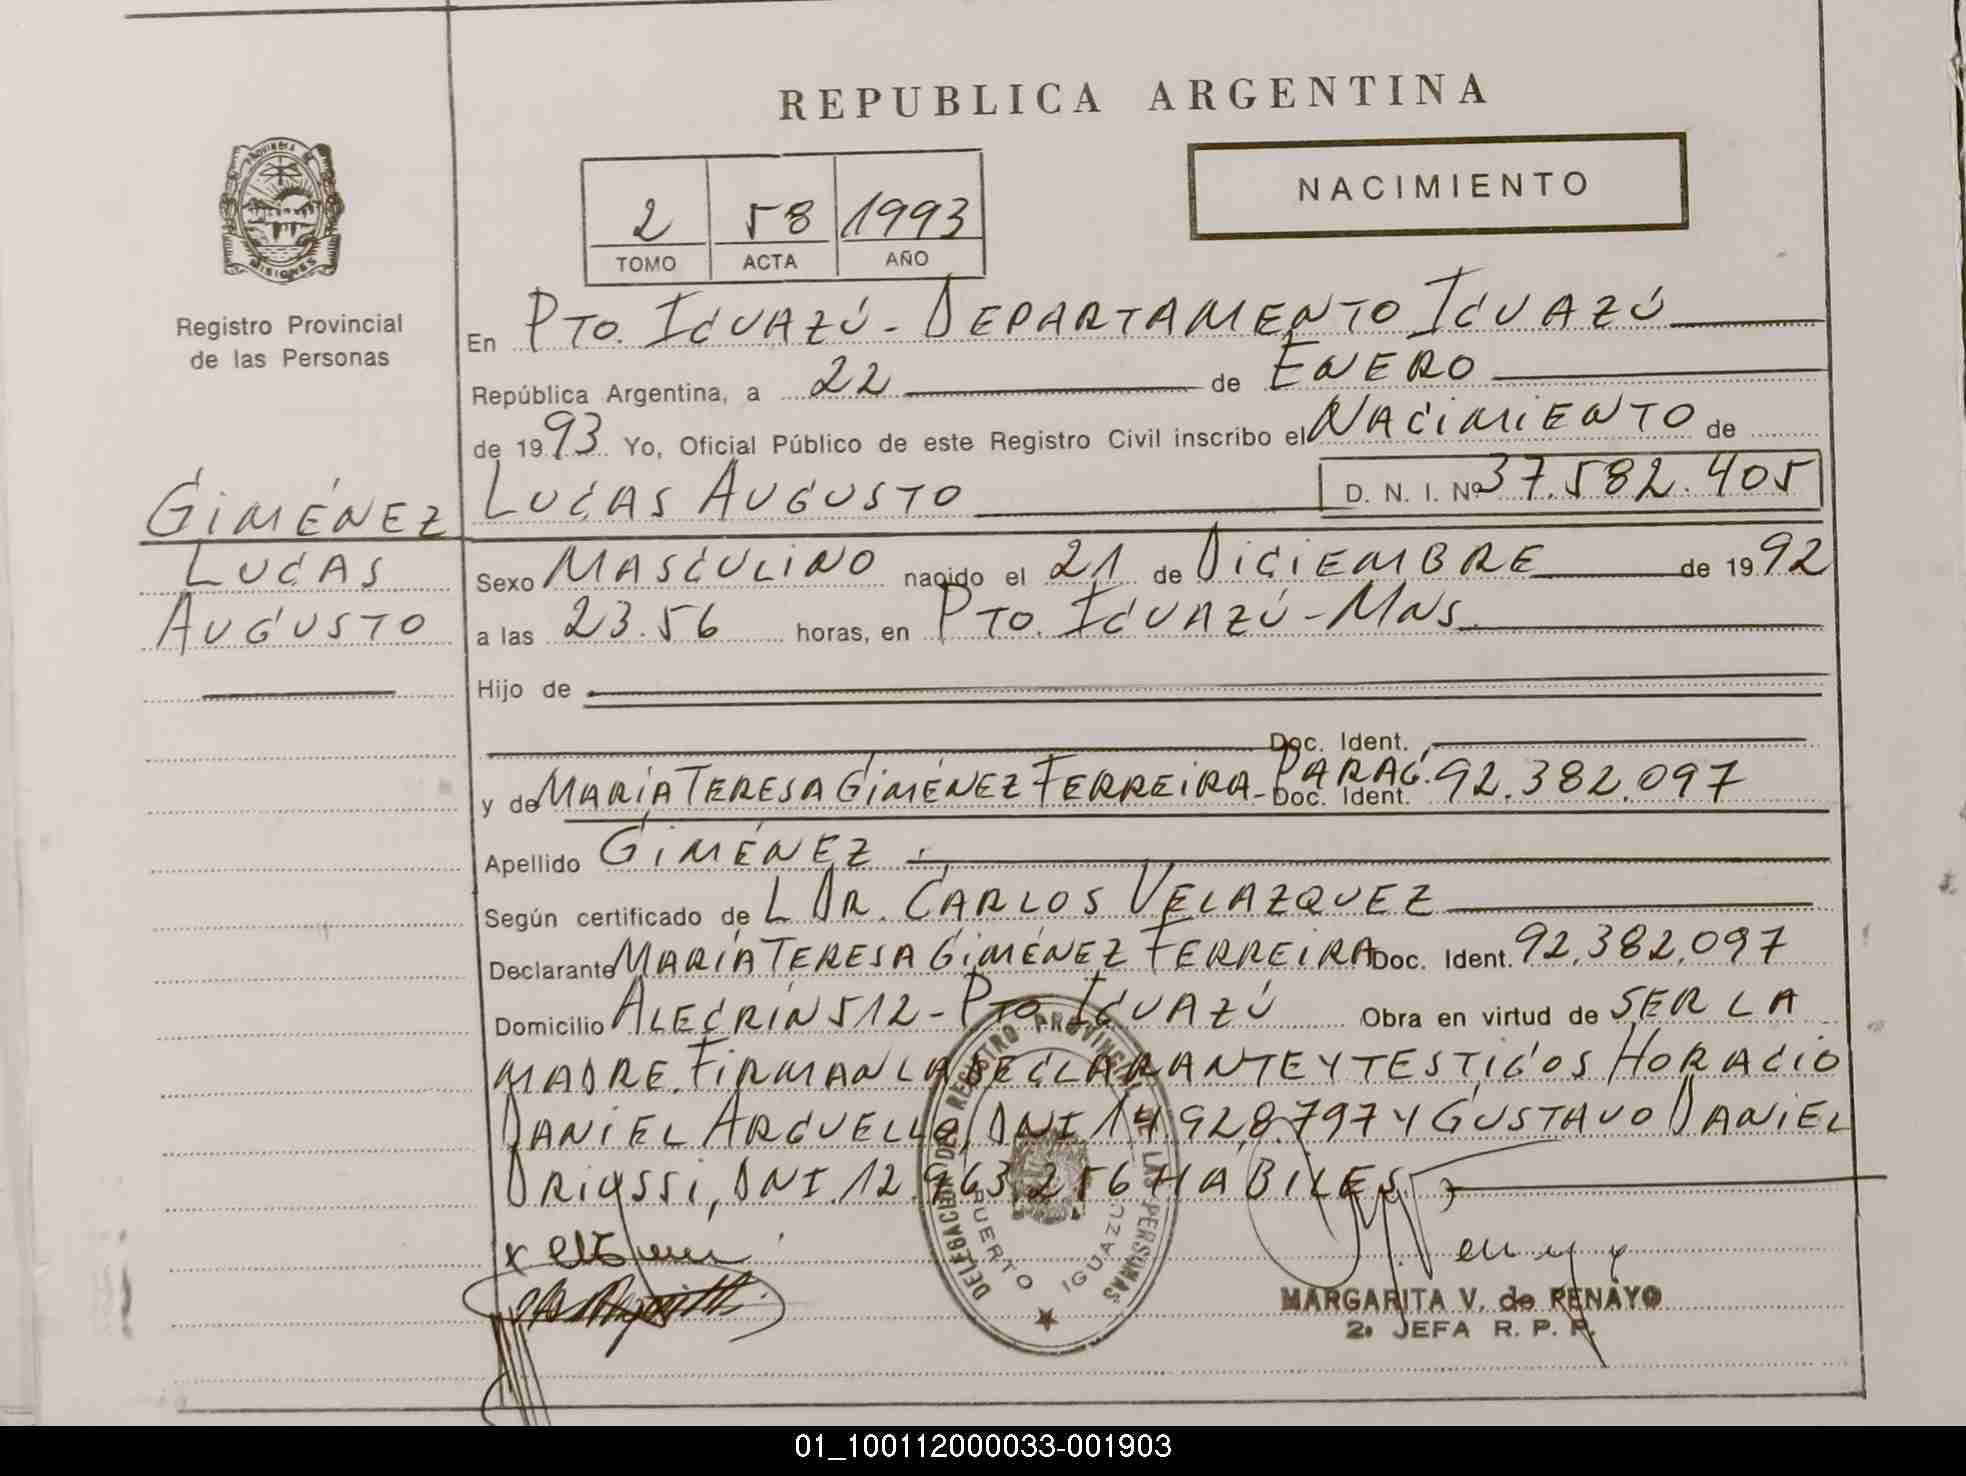 REPUBLICA ARGENTINA
PROVINCIA DE
MISIONES
NACIMIENTO
2 58 1993
TOMO ACTA AÑO
Registro Provincial
de las Personas
En PTO. IGUAZÚ - DEPARTAMENTO IGUAZÚ
República Argentina, a 22 de ENERO
de 1993 Yo, Oficial Público de este Registro Civil inscribo el NACIMIENTO de
GIMÉNEZ
LUCAS
AUGUSTO
LUCAS AUGUSTO D. N. I. Nº 37.582.405
Sexo MASCULINO nacido el 21 de DICIEMBRE de 1992
a las 23.56 horas, en PTO. IGUAZÚ - MNS.
Hijo de
Doc. Ident.
y de MARÍA TERESA GIMÉNEZ FERREIRA - PARAG. Doc. Ident. 92.382.097
Apellido GIMÉNEZ.
Según certificado de L DR. CARLOS VELAZQUEZ
Declarante MARÍA TERESA GIMÉNEZ FERREIRA Doc. Ident. 92.382.097
Domicilio ALECRÍN 512 - PTO. IGUAZÚ Obra en virtud de SER LA
MADRE. FIRMAN LA DECLARANTE Y TESTIGOS HORACIO
DANIEL ARGUELLO, DNI. 14.928.797 Y GUSTAVO DANIEL
DNI. 12.963.256 HABILES
DELEGACION DEL REGISTRO PROVINCIAL DE LAS PERSONAS
PUERTO IGUAZU
MARGARITA V. de PENAYO
2ª JEFA R. P. P.
01_100112000033-001903